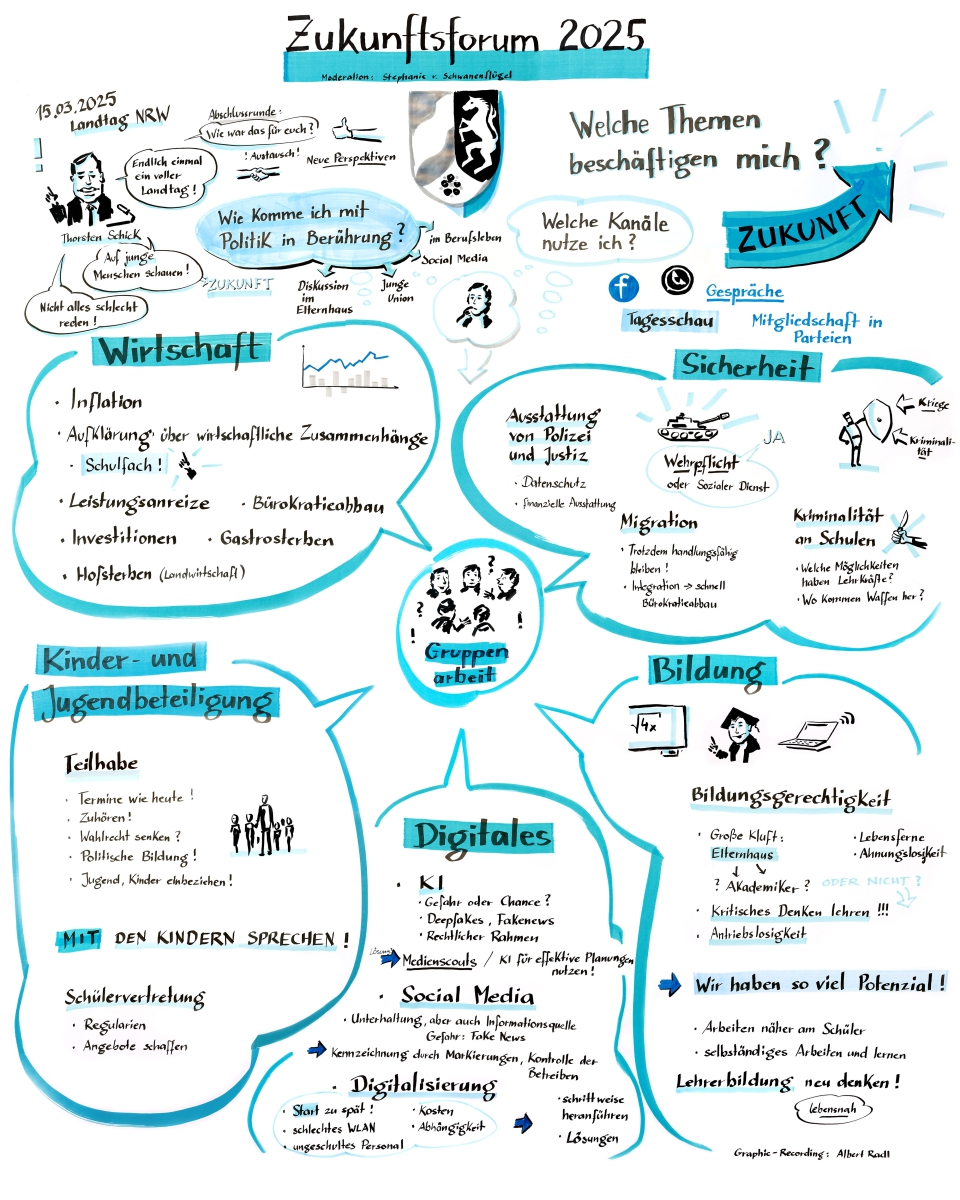 Zukunftsforum 2025
Moderation: Stephanie v. Schwanenflügel
15.03.2025
Landtag NRW
Abschlussrunde:
Wie war das für euch?
! Austausch!
Neue Perspektiven
Endlich einmal
ein voller
Landtag!
Thorsten Schick
Auf junge
Menschen schauen!
Nicht alles schlecht
reden!
ZUKUNFT
Wie komme ich mit
Politik in Berührung?
im Berufsleben
Social Media
Diskussion
im
Elternhaus
Junge
Union
Welche Themen
beschäftigen mich?
ZUKUNFT
Welche Kanäle
nutze ich?
f
Gespräche
Tagesschau
Mitgliedschaft in
Parteien
Wirtschaft
· Inflation
· Aufklärung über wirtschaftliche Zusammenhänge
· Schulfach!
· Leistungsanreize
· Bürokratieabbau
· Investitionen
· Gastrosterben
· Hofsterben (Landwirtschaft)
Sicherheit
Ausstattung
von Polizei
und Justiz
· Datenschutz
· finanzielle Ausstattung
JA
Wehrpflicht
oder Sozialer Dienst
Kriege
Kriminali-
tät
Migration
· Trotzdem handlungsfähig
bleiben!
· Integration → schnell
Bürokratieabbau
Kriminalität
an Schulen
· Welche Möglichkeiten
haben Lehrkräfte?
· Wo kommen Waffen her?
?
?
?
!
!
Gruppen
arbeit
Kinder- und
Jugendbeteiligung
Teilhabe
· Termine wie heute!
· Zuhören!
· Wahlrecht senken?
· Politische Bildung!
· Jugend, Kinder einbeziehen!
MIT DEN KINDERN SPRECHEN!
Schülervertretung
· Regularien
· Angebote schaffen
Digitales
· KI
· Gefahr oder Chance?
· Deepfakes, Fakenews
· Rechtlicher Rahmen
Lösung:
Medienscouts / KI für effektive Planungen
nutzen!
· Social Media
· Unterhaltung, aber auch Informationsquelle
Gefahr: Fake News
Kennzeichnung durch Markierungen, Kontrolle der
Betreiben
· Digitalisierung
· Start zu spät!
· schlechtes WLAN
· ungeschultes Personal
· Kosten
· Abhängigkeit
· schrittweise
heranführen
· Lösungen
Bildung
√4x
Bildungsgerechtigkeit
· Große Kluft:
Elternhaus
? Akademiker? ODER NICHT?
· Lebensferne
· Ahnungslosigkeit
· Kritisches Denken lehren!!!
· Antriebslosigkeit
Wir haben so viel Potenzial!
· Arbeiten näher am Schüler
· selbständiges Arbeiten und lernen
Lehrerbildung neu denken!
lebensnah
Graphic-Recording: Albert Radl